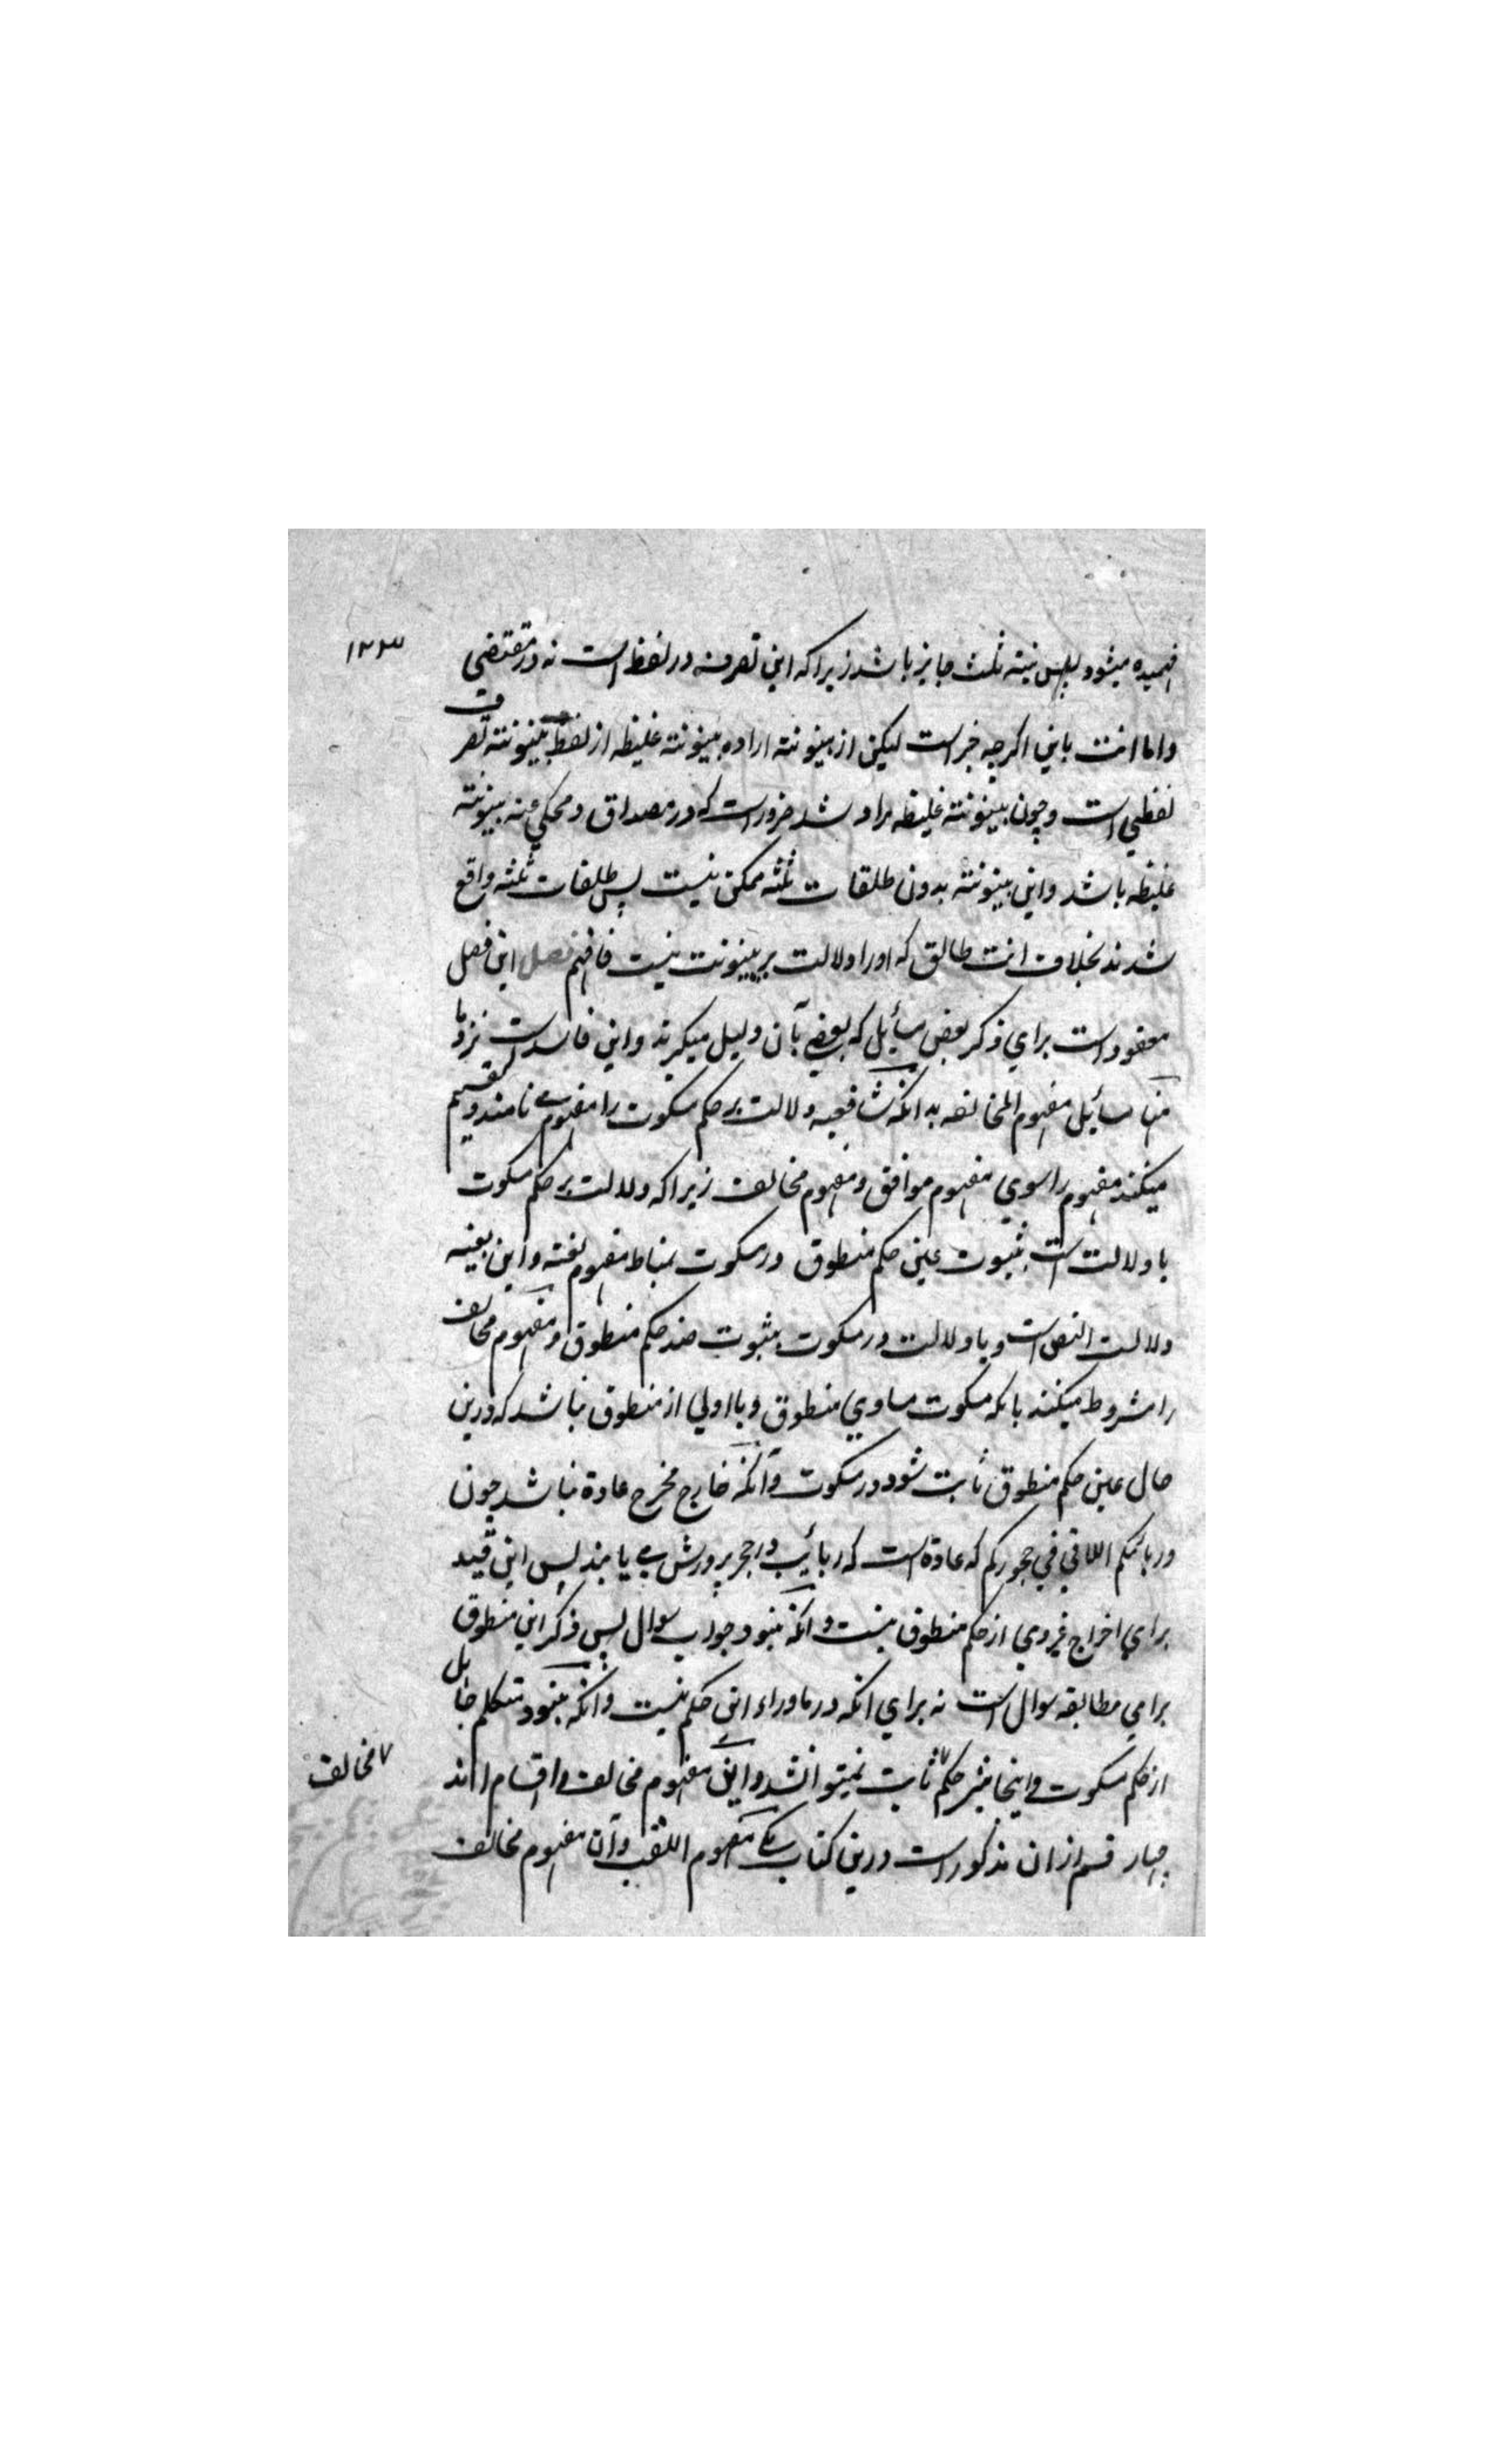 ۱۲۳
فهمیده میشود پس نیته ثلث جایز باشد زیرا که این تصرف در لفظ است نه در مقتضی
واما انت باین اکرچه خبر است لیکن از بینونته اراده بینونته غلیظه از لفظ بینونته تصرف
لفظی است وچون بینونته غلیظه مراد شد ضرور است که در مصداق ومحکی عنه بینونته
غلیظه باشد واین بینونته بدون طلقات ثلثه ممکن نیست پس طلقات ثلثه واقع
شدند بخلاف انت طالق که اورا دلالت بر بینونت نیست فافهم فصل این فصل
معقود است برای ذکر بعض مسائل که بعضی بآن دلیل میکیرند واین فاسد است نزد ما
من مسائل مفهوم المخالفه بدانکه شافعیه دلالت بر حکم سکوت را مفهوم می نامند وتقسیم
میکنند مفهوم را سوی مفهوم موافق ومفهوم مخالف زیرا که دلالت بر حکم سکوت
یا دلالت است بثبوت عین حکم منطوق در سکوت بمناط مفهوم لغته واین بعینه
دلالت النص است ویا دلالت در سکوت بثبوت ضد حکم منطوق ومفهوم مخالف
را مشروط میکنند بانکه سکوت مساوی منطوق ویا اولی از منطوق نباشد که درین
حال عین حکم منطوق ثابت شود در سکوت وآنکه خارج مخرج عادة نباشد چون
وربائبکم اللاتی فی حجورکم که عادة است که ربائب در حجر پرورش می یابند پس این قید
برای اخراج غیروی از حکم منطوق نیست وانکه نبود جواب سوال پس ذکر این منطوق
برای مطابقه سوال است نه برای انکه در ماوراء این حکم نیست وانکه نبود متکلم جاهل
از حکم سکوت واینجا نیز حکم ثابت نمیتواند شد واین مفهوم مخالف را اقسام اند
مخالف
چهار قسم ازان مذکور است درین کتاب یکی مفهوم اللقب وآن مفهوم مخالف